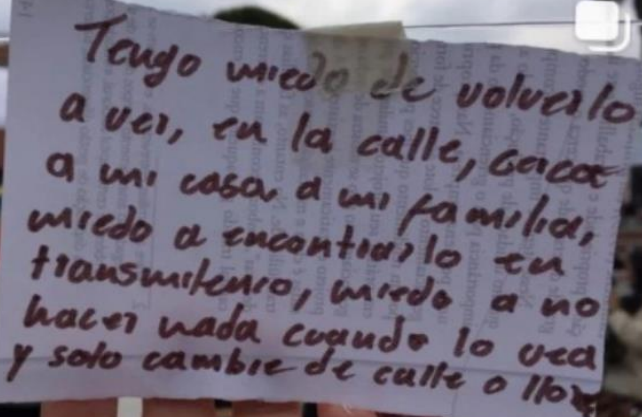 Tengo miedo de volverlo
a ver, en la calle, cerca
a mi casa, a mi familia,
miedo a encontrarlo en
transmilenio, miedo a no
hacer nada cuando lo vea
y solo cambie de calle o llore